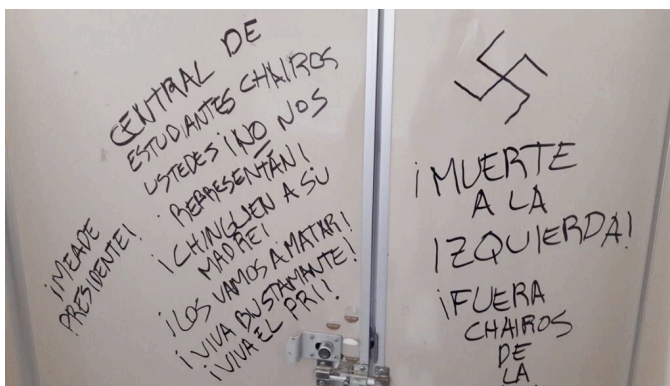 CENTRAL DE
ESTUDIANTES CHAIROS
USTEDES ¡NO NOS
REPRESENTAN!
¡CHINGUEN A SU
MADRE!
¡LOS VAMOS A MATAR!
¡VIVA BUSTAMANTE!
¡VIVA EL PRI!
¡MEADE
PRESIDENTE!
¡MUERTE
A LA
IZQUIERDA!
¡FUERA
CHAIROS
DE
LA